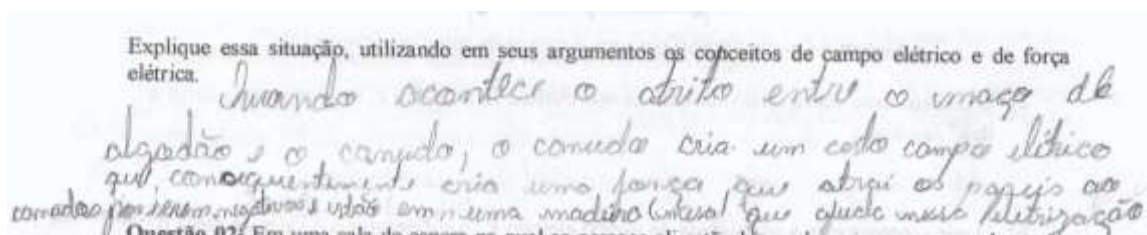 Explique essa situação, utilizando em seus argumentos os conceitos de campo elétrico e de força
elétrica. Quando acontece o atrito entre o maço de
algodão e o canudo, o canudo cria um certo campo elétrico
que, consequentemente cria uma força que atrai os papeis ao
canudo por serem negativos e estão em numa madeira (mesa) que ajuda nessa eletrização
Questão 02: Em uma sala de